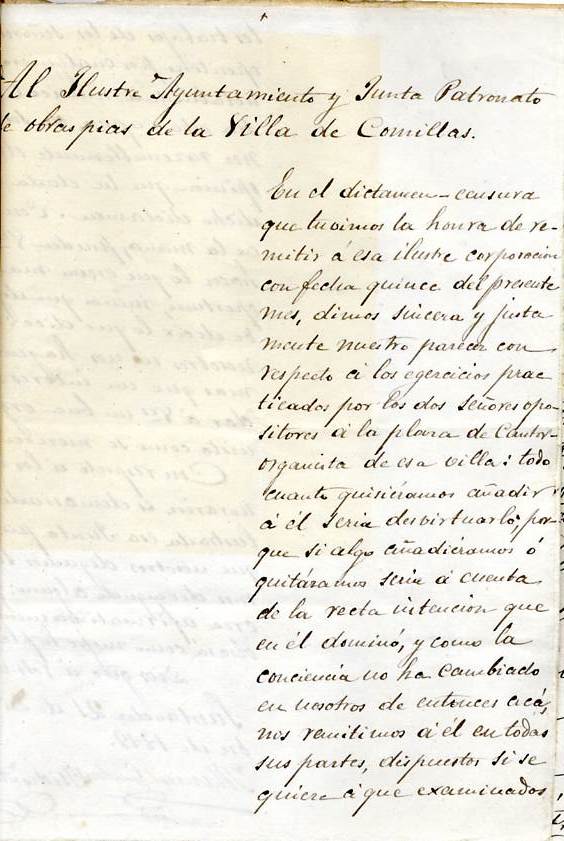 Al Ilustre Ayuntamiento y Junta Patronato
de obras pias de la Villa de Comillas.
En el dictamen-censura
que tuvimos la honra de re-
mitir á esa ilustre corporacion
con fecha quince del presente
mes, dimos sincera y justa
mente nuestro parecer con
respecto á los egercicios prac
ticados por los dos señores opo-
sitores á la plaza de Cantor-
organista de esa villa: todo
cuanto quisiéramos añadir
á él seria desvirtuarlo; por-
que si algo añadiéramos ó
quitáramos seria á cuenta
de la recta intencion que
en él dominó, y como la
conciencia no ha cambiado
en nosotros de entonces acá,
nos remitimos á él en todas
sus partes, dispuestos si se
quiere á que examinados